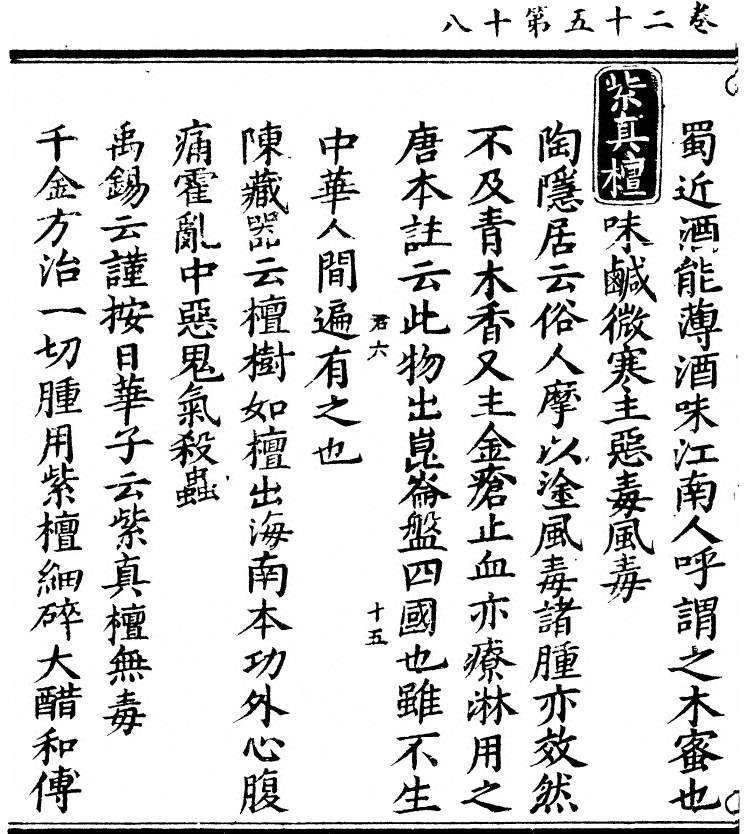 卷二十五第十八
蜀近酒能薄酒味江南人呼謂之木蜜也
紫真檀 味鹹微寒主惡毒風毒
陶隱居云俗人摩以塗風毒諸腫亦效然
不及青木香又主金瘡止血亦療淋用之
唐本註云此物出崑崙盤四國也雖不生
君六 十五
中華人間遍有之也
陳藏器云檀樹如檀出海南本功外心腹
痛霍亂中惡鬼氣殺蟲
禹錫云謹按日華子云紫真檀無毒
千金方治一切腫用紫檀細碎大醋和傅